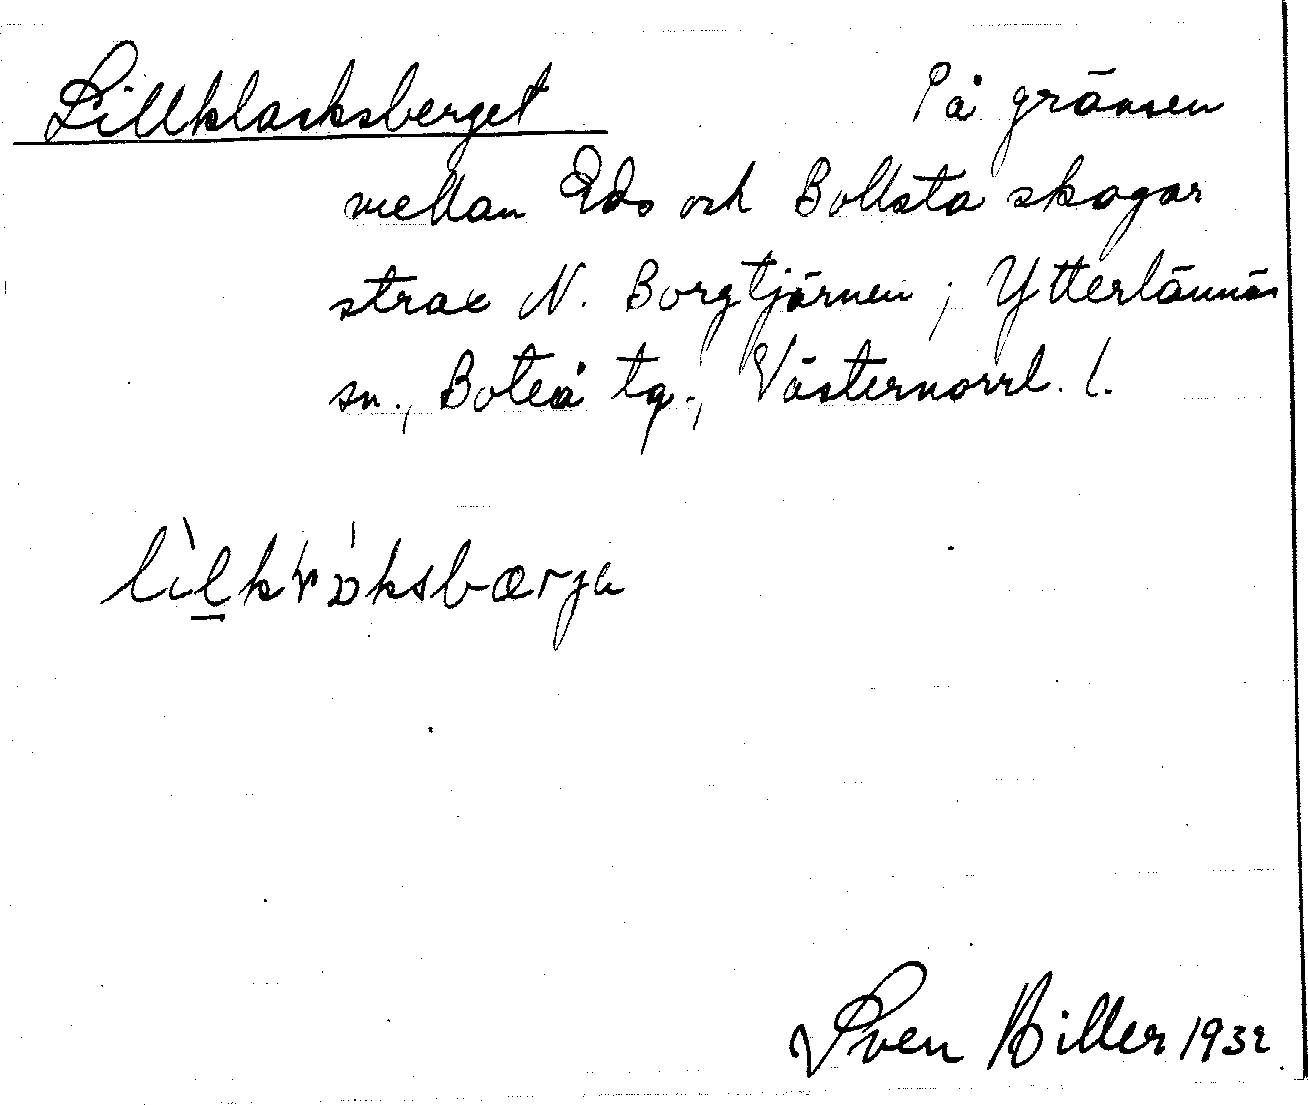 Lillklacksberget På gränsen
mellan Eds och Bollsta skogar
strax N. Borgtjärnen, Ytterlännäs
sn., Boteå tg., Västernorrl. l.
Sven Biller 1932